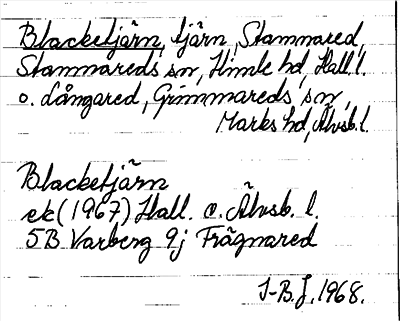 Blacketjärn, tjärn, Stammared,
Stammareds sn, Himle hd, Hall. l.
o. Långared, Grimmareds sn,
Marks hd, Älvsb. l.
Blacketjärn
ek (1967) Hall. o. Älvsb. l.
5B Varberg 9j Frägnared
I-B.J. 1968.